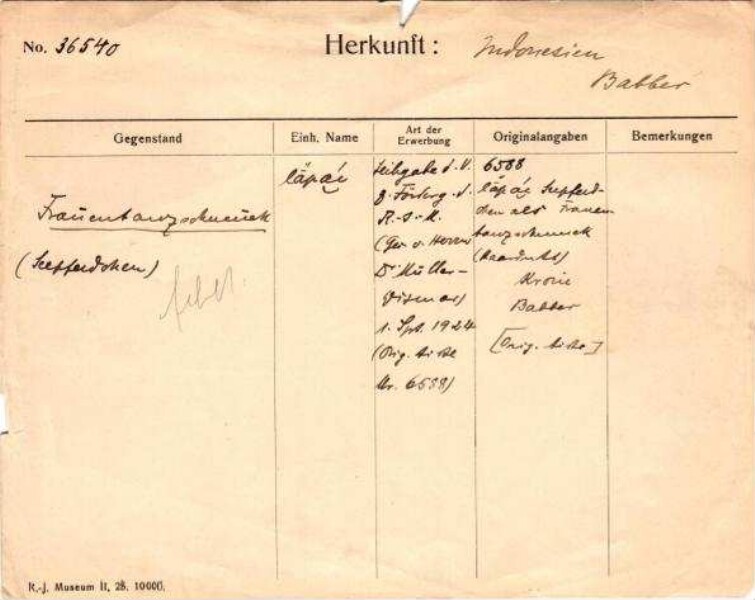 No. 36540
Herkunft: Indonesien
Babber
Gegenstand
Einh. Name
Art der Erwerbung
Originalangaben
Bemerkungen
Frauentanzschmuck
(Seepferdchen)
fehlt
läpái
Leihgabe d. V.
z. Förderg. d.
R.-J.-M.
(Ger. v. Herrn
Dr Müller-
Wismar)
1. Spt. 1924
(Orig. Liste
Nr. 6588)
6588
läpái Seepferd-
chen als Frauen-
tanzschmuck
Babber
[Orig. Liste]
R.-J. Museum II, 28. 10000.